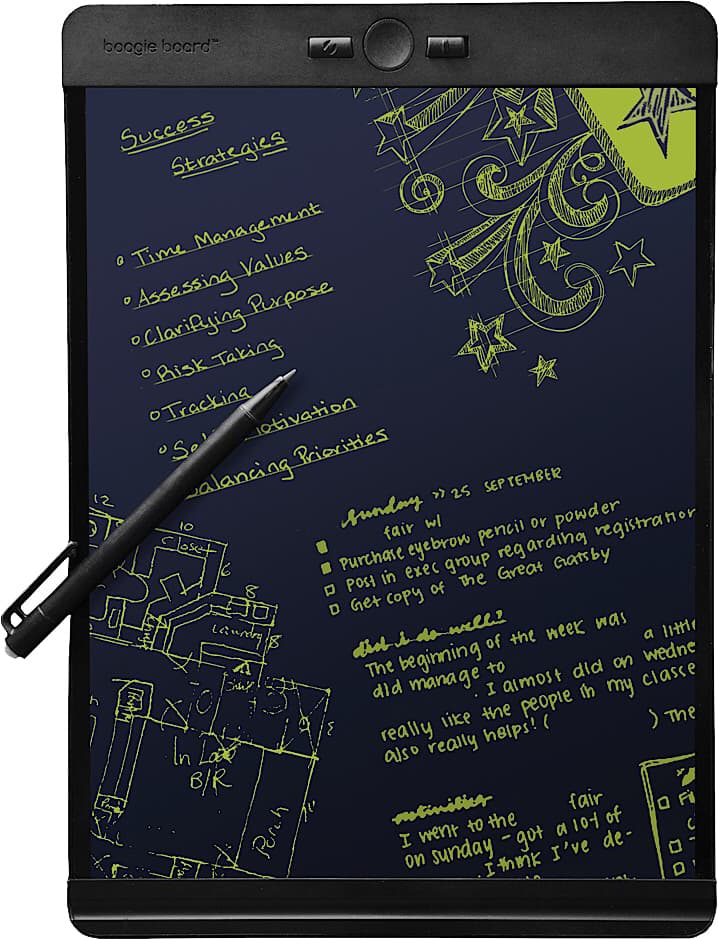 boogie board™
Success
Strategies
Time Management
Assessing Values
Clarifying Purpose
Risk Taking
Tracking
Motivation
Balancing Priorities
Sunday >> 25 SEPTEMBER
fair w/
Purchase eyebrow pencil or powder
Post in exec group regarding registration
Get copy of The Great Gatsby
did i do well?
The beginning of the week was a little
did manage to
. I almost did on wedne
really like the people in my classe
also really helps! ( ) The
activities
I went to the fair
on Sunday - got a lot of
. I think I've de-
you
12
10
Closet
6
8
Laundry
8
In Law
B/R
Porch